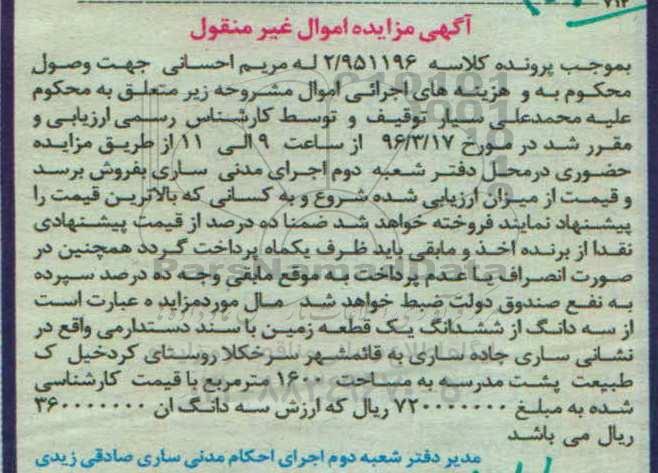 ۷۱۳
آگهی مزایده اموال غیر منقول
بموجب پرونده کلاسه ۲/۹۵۱۱۹۶ له مریم احسانی جهت وصول
محکوم به و هزینه های اجرائی اموال مشروحه زیر متعلق به محکوم
علیه محمدعلی سیار توقیف و توسط کارشناس رسمی ارزیابی و
مقرر شد در مورخ ۹۶/۳/۱۷ از ساعت ۹ الی ۱۱ از طریق مزایده
حضوری درمحل دفتر شعبه دوم اجرای مدنی ساری بفروش برسد
و قیمت از میزان ارزیابی شده شروع و به کسانی که بالاترین قیمت را
پیشنهاد نمایند فروخته خواهد شد ضمنا ده درصد از قیمت پیشنهادی
نقدا از برنده اخذ و مابقی باید ظرف یکماه پرداخت گردد همچنین در
صورت انصراف یا عدم پرداخت به موقع مابقی وجه ده درصد سپرده
به نفع صندوق دولت ضبط خواهد شد مال موردمزاید ه عبارت است
از سه دانگ از ششدانگ یک قطعه زمین با سند دستدارمی واقع در
نشانی ساری جاده ساری به قائمشهر سرخکلا روستای کردخیل ک
طبیعت پشت مدرسه به مساحت ۱۶۰۰ مترمربع با قیمت کارشناسی
شده به مبلغ ۷۲۰۰۰۰۰۰۰۰ ریال که ارزش سه دانگ ان ۳۶۰۰۰۰۰۰۰۰
ریال می باشد
مدیر دفتر شعبه دوم اجرای احکام مدنی ساری صادقی زیدی